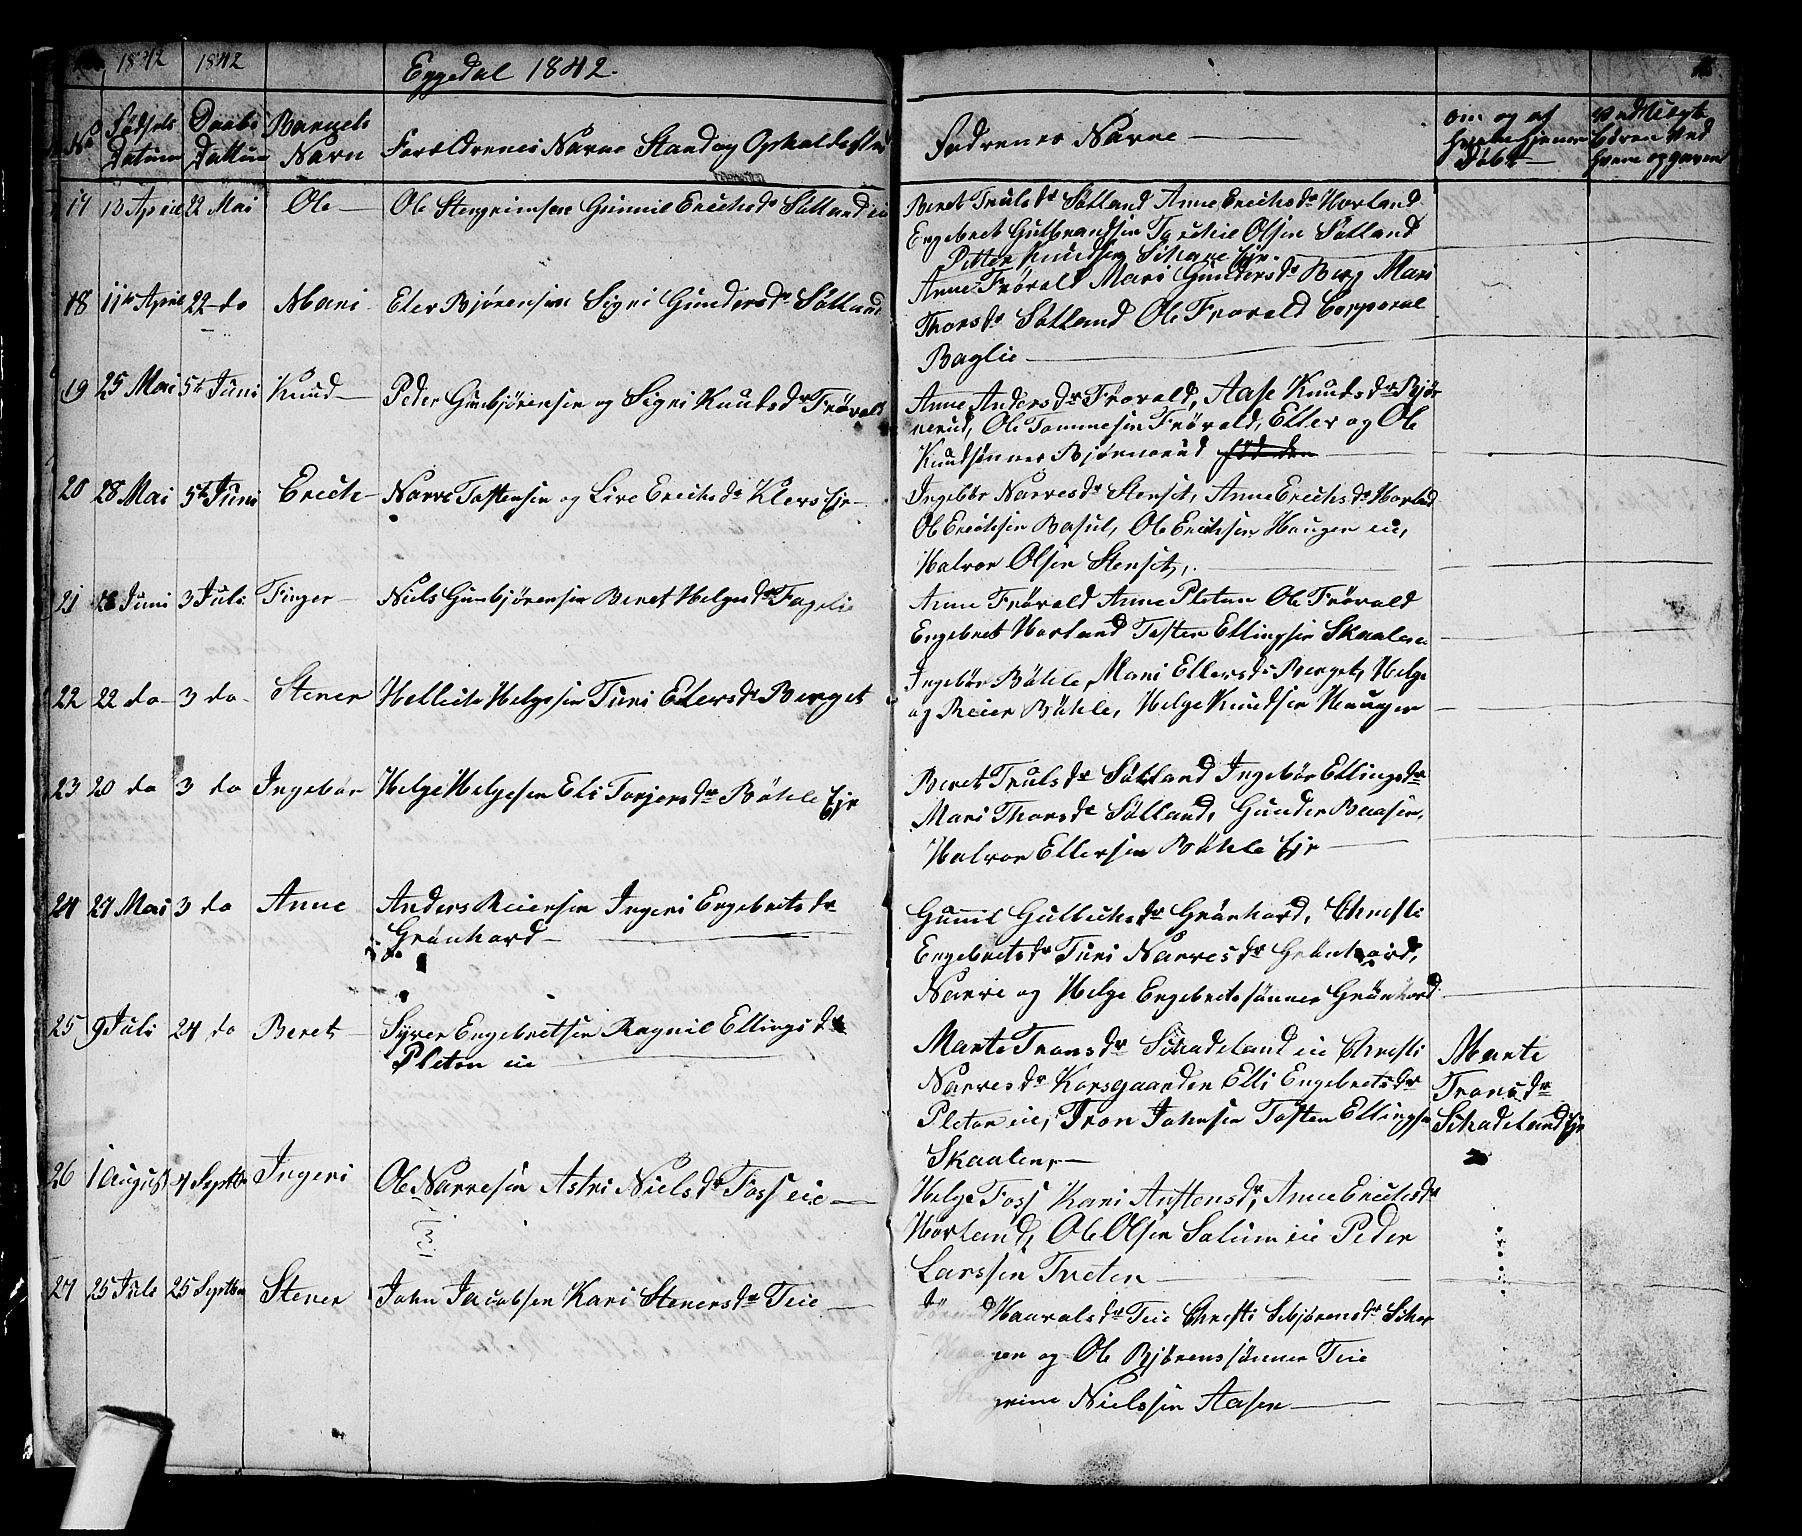 1842 1842 Eggedal 1842.
No Fødsels Datum Daabs Dattum Barnets Navn Forældrenes Navne Stand og Opholdssted Fadrenes Navne — om og af Hjemmedøbt
17 13 April 22 Mai Ole — Ole Stengrimsen Gunnil Erichsdr Søtland eie
Beret Trulsdr Søtland Anne Erichsdr Horland
Engebret Gulbrandsen Torchil Olsen Søtland
Petter Knudsen Skare Ejr.
18 11te April 22 do Mari Eler Bjørensen Sigri Gundersdr Søtland
Anne Frövold Mari Gundersdr Berg Mari
Thorsdr Søtland Ole Frovold Corporal
Baglie —
19 25 Mai 5te Juni Knud — Peder Gunbjörensen og Sigri Knutsdr Frövold
Anne Andersdr Frövold, Aase Knutsdr Bjør
nerud, Ole Tommesen Frövold, Eller og Ole
Knudsønner Bjørnerud
20 28 Mai 5te Juni Erich — Narve Tostensen og Live Erichsdr Klevs Ejr —
Ingebør Narvesdr Stensit, Anne Erichsdr Horland
Ole Erichsen Basul, Ole Erichsen Haugen eie,
Halvor Olsen Stensit,
21 Juni 3 Juli Finger — Niels Gunbjörensen Beret Helgesdr Fagelie
Anne Frövold Anne Pleten Ole Frövold
Engebret Horland Tosten Ellingsen Skaalen
22 22 do 3 do Stener Hellich Helgesen Turi Elersdr Berget
Ingebør Bøhle, Mari Ellersdr Berget, Helge
og Reier Bøhle, Helge Knudsen Haugen
23 20 do 3 do Ingebør Helge Helgesen Eli Torjersdr Bøhle Ejr
Beret Trulsdr Søtland Ingebør Ellingsdr
Mari Thorsdr Søtland, Gunder Baasen,
Halvor Ellersen Bøhle Ejr —
24 27 Mai 3 do Anne Anders Reiersen Ingeri Engebretsdr
Grönhord —
Gunnil Gullichsdr Grönhord, Christi
Engebretsdr Turi Narvesdr Grönhord,
Narve og Helge Engebretssønner Grönhord
25 9 Juli 24 do Beret — Syver Engebretsen Ragnil Ellingsdr
Pleten eie —
Marte Tronsdr Skadeland eie Christi
Narvesdr Korsgaarden Elli Engebretsdr
Pleten eie, Tron Johnsen Tosten Ellingsen
Skaalen, —
Marte
Tronsdr
Skadeland Ejr
26 1 August 4 Septbr Ingeri Ole Narvesen Astri Nielsdr Foss eie —
Helge Foss Kari Anstensdr, Anne Erichsdr
Horland, Ole Olsen Solum eie Peder
Larssen Tveten —
27 25 Juli 25 Septbr Stener John Jacobsen Kari Stenersdr Teie —
Haavalsdr Teie Christi Sebjørensdr
og Ole Bjørenssønner Teie
Nielssen Aasen —